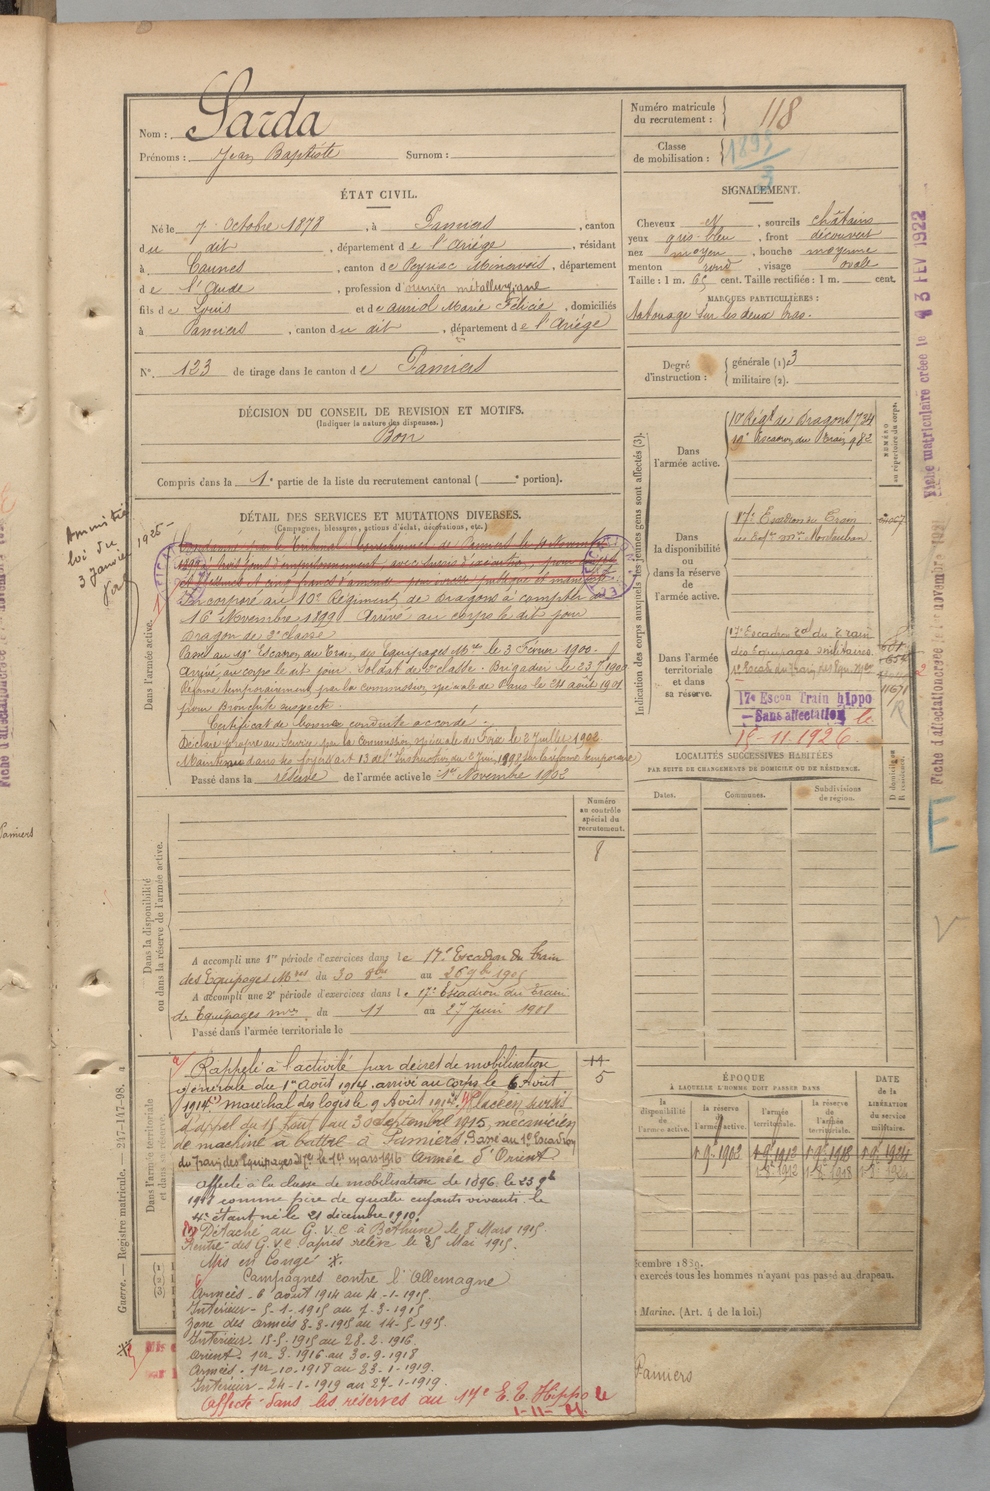 Nom : Sarda
Prénoms : Jean Baptiste Surnom :
Numéro matricule du recrutement : 118
Classe de mobilisation :
ÉTAT CIVIL.
Né le 7 Octobre 1878, à Pamiers, canton
du dit, département de l'Ariège, résidant
à Caunes, canton de Peyriac Minervois, département
de l'Aude, profession d'ouvrier métallurgique
fils de Louis et de Auriol Marie Félicie, domiciliés
à Pamiers, canton du dit, département de l'Ariège
N° 123 de tirage dans le canton de Pamiers
SIGNALEMENT.
Cheveux N, sourcils châtains
yeux gris-bleu, front découvert
nez moyen, bouche moyenne
menton rond, visage ovale
Taille : 1 m. 65 cent. Taille rectifiée : 1 m. cent.
MARQUES PARTICULIÈRES :
Tatouage sur les deux bras.
Degré d'instruction : générale (1) 3
militaire (2).
DÉCISION DU CONSEIL DE REVISION ET MOTIFS.
(Indiquer la nature des dispenses.)
Bon
Compris dans la 1e partie de la liste du recrutement cantonal ( e portion).
DÉTAIL DES SERVICES ET MUTATIONS DIVERSES.
(Campagnes, blessures, actions d'éclat, décorations, etc.)
Amnistié
loi du
3 Janvier 1925
Dans l'armée active.
Condamné par le Tribunal Correctionnel de Pamiers le 11 Novembre
Incorporé au 10e Régiment de Dragons à compter du
16 Novembre 1899 Arrivé au corps le dit jour
Dragon de 2e classe
Passé au 19e Escadron du Train des Equipages Mres le 3 Février 1900.
Arrivé au corps le dit jour. Soldat de 2e classe. Brigadier le 23 7
Réformé temporairement par la Commission spéciale de Paris le 24 août 1901
pour Bronchite suspecte.
Certificat de bonne conduite accordé.
Déclaré propre au service par la Commission spéciale de Foix le 2 Juillet 1902
Passé dans la réserve de l'armée active le 1er Novembre 1902
Indication des corps auxquels les jeunes gens sont affectés (3).
NUMÉRO au répertoire du corps.
Dans l'armée active.
10e Régt de Dragons 734
19e Escadron du Train 982
Dans la disponibilité ou dans la réserve de l'armée active.
17e Escadron du Train
Dans l'armée territoriale et dans sa réserve.
17e Escadron Tal du Train
des Equipages militaires
17e Escon Train hippo
Sans affectation le
15-11-1926.
11671
R
LOCALITÉS SUCCESSIVES HABITÉES
PAR SUITE DE CHANGEMENTS DE DOMICILE OU DE RÉSIDENCE.
Dates. Communes. Subdivisions de région. D domicile R résidence.
Numéro au contrôle spécial du recrutement.
8
Dans la disponibilité ou dans la réserve de l'armée active.
A accompli une 1re période d'exercices dans le 17e Escadron du Train
des Equipages Mres du 30 8bre au 26 9bre 1905
A accompli une 2e période d'exercices dans le 17e Escadron du Train
des Equipages Mres du 11 au 27 Juin 1908
Passé dans l'armée territoriale le
Dans l'armée territoriale et dans sa réserve.
14
5
Rappelé à l'activité par décret de mobilisation
générale du 1er août 1914. arrivé au corps le 6 Août
1914. maréchal des logis le 9 Août 1914. Placé en sursis
d'appel du 15 août au 30 septembre 1915, mécanicien
de machine à battre à Pamiers. Passé au 1e Escadron
du Train des Equipages Mres le 1er mars 1916 Armée d'Orient
Affecté à la classe de mobilisation de 1896 le 25 9b
1918 comme père de quatre enfants vivants le
4e étant né le 21 décembre 1910
Détaché au G.V.C à Béthune le 8 Mars 1915
Rentré des G.V.C après relève le 25 Mai 1915.
Mis en Congé
Campagnes contre l'Allemagne
Armées - 6 août 1914 au 4-1-1915.
Intérieur - 5-1-1915 au 7-3-1915
Zone des armées 8-3-1915 au 14-5-1915.
Intérieur. 15-5-1915 au 28-2-1916.
Orient. 1er-3-1916 au 30-9-1918
Armées. 1er-10-1918 au 23-1-1919.
Intérieur - 24-1-1919 au 27-1-1919.
Affecté dans les réserves au 17e E.T. Hippo le
ÉPOQUE
À LAQUELLE L'HOMME DOIT PASSER DANS
la disponibilité de l'armée active.
la réserve de l'armée active.
l'armée territoriale.
la réserve de l'armée territoriale.
DATE de la LIBÉRATION du service militaire.
exercés tous les hommes n'ayant pas passé au drapeau.
Marine. (Art. 4 de la loi.)
Pamiers
Guerre. — Registre matricule. — 247-147-98.
Fiche matriculaire créée le 3 FEV 1922
E
Pamiers